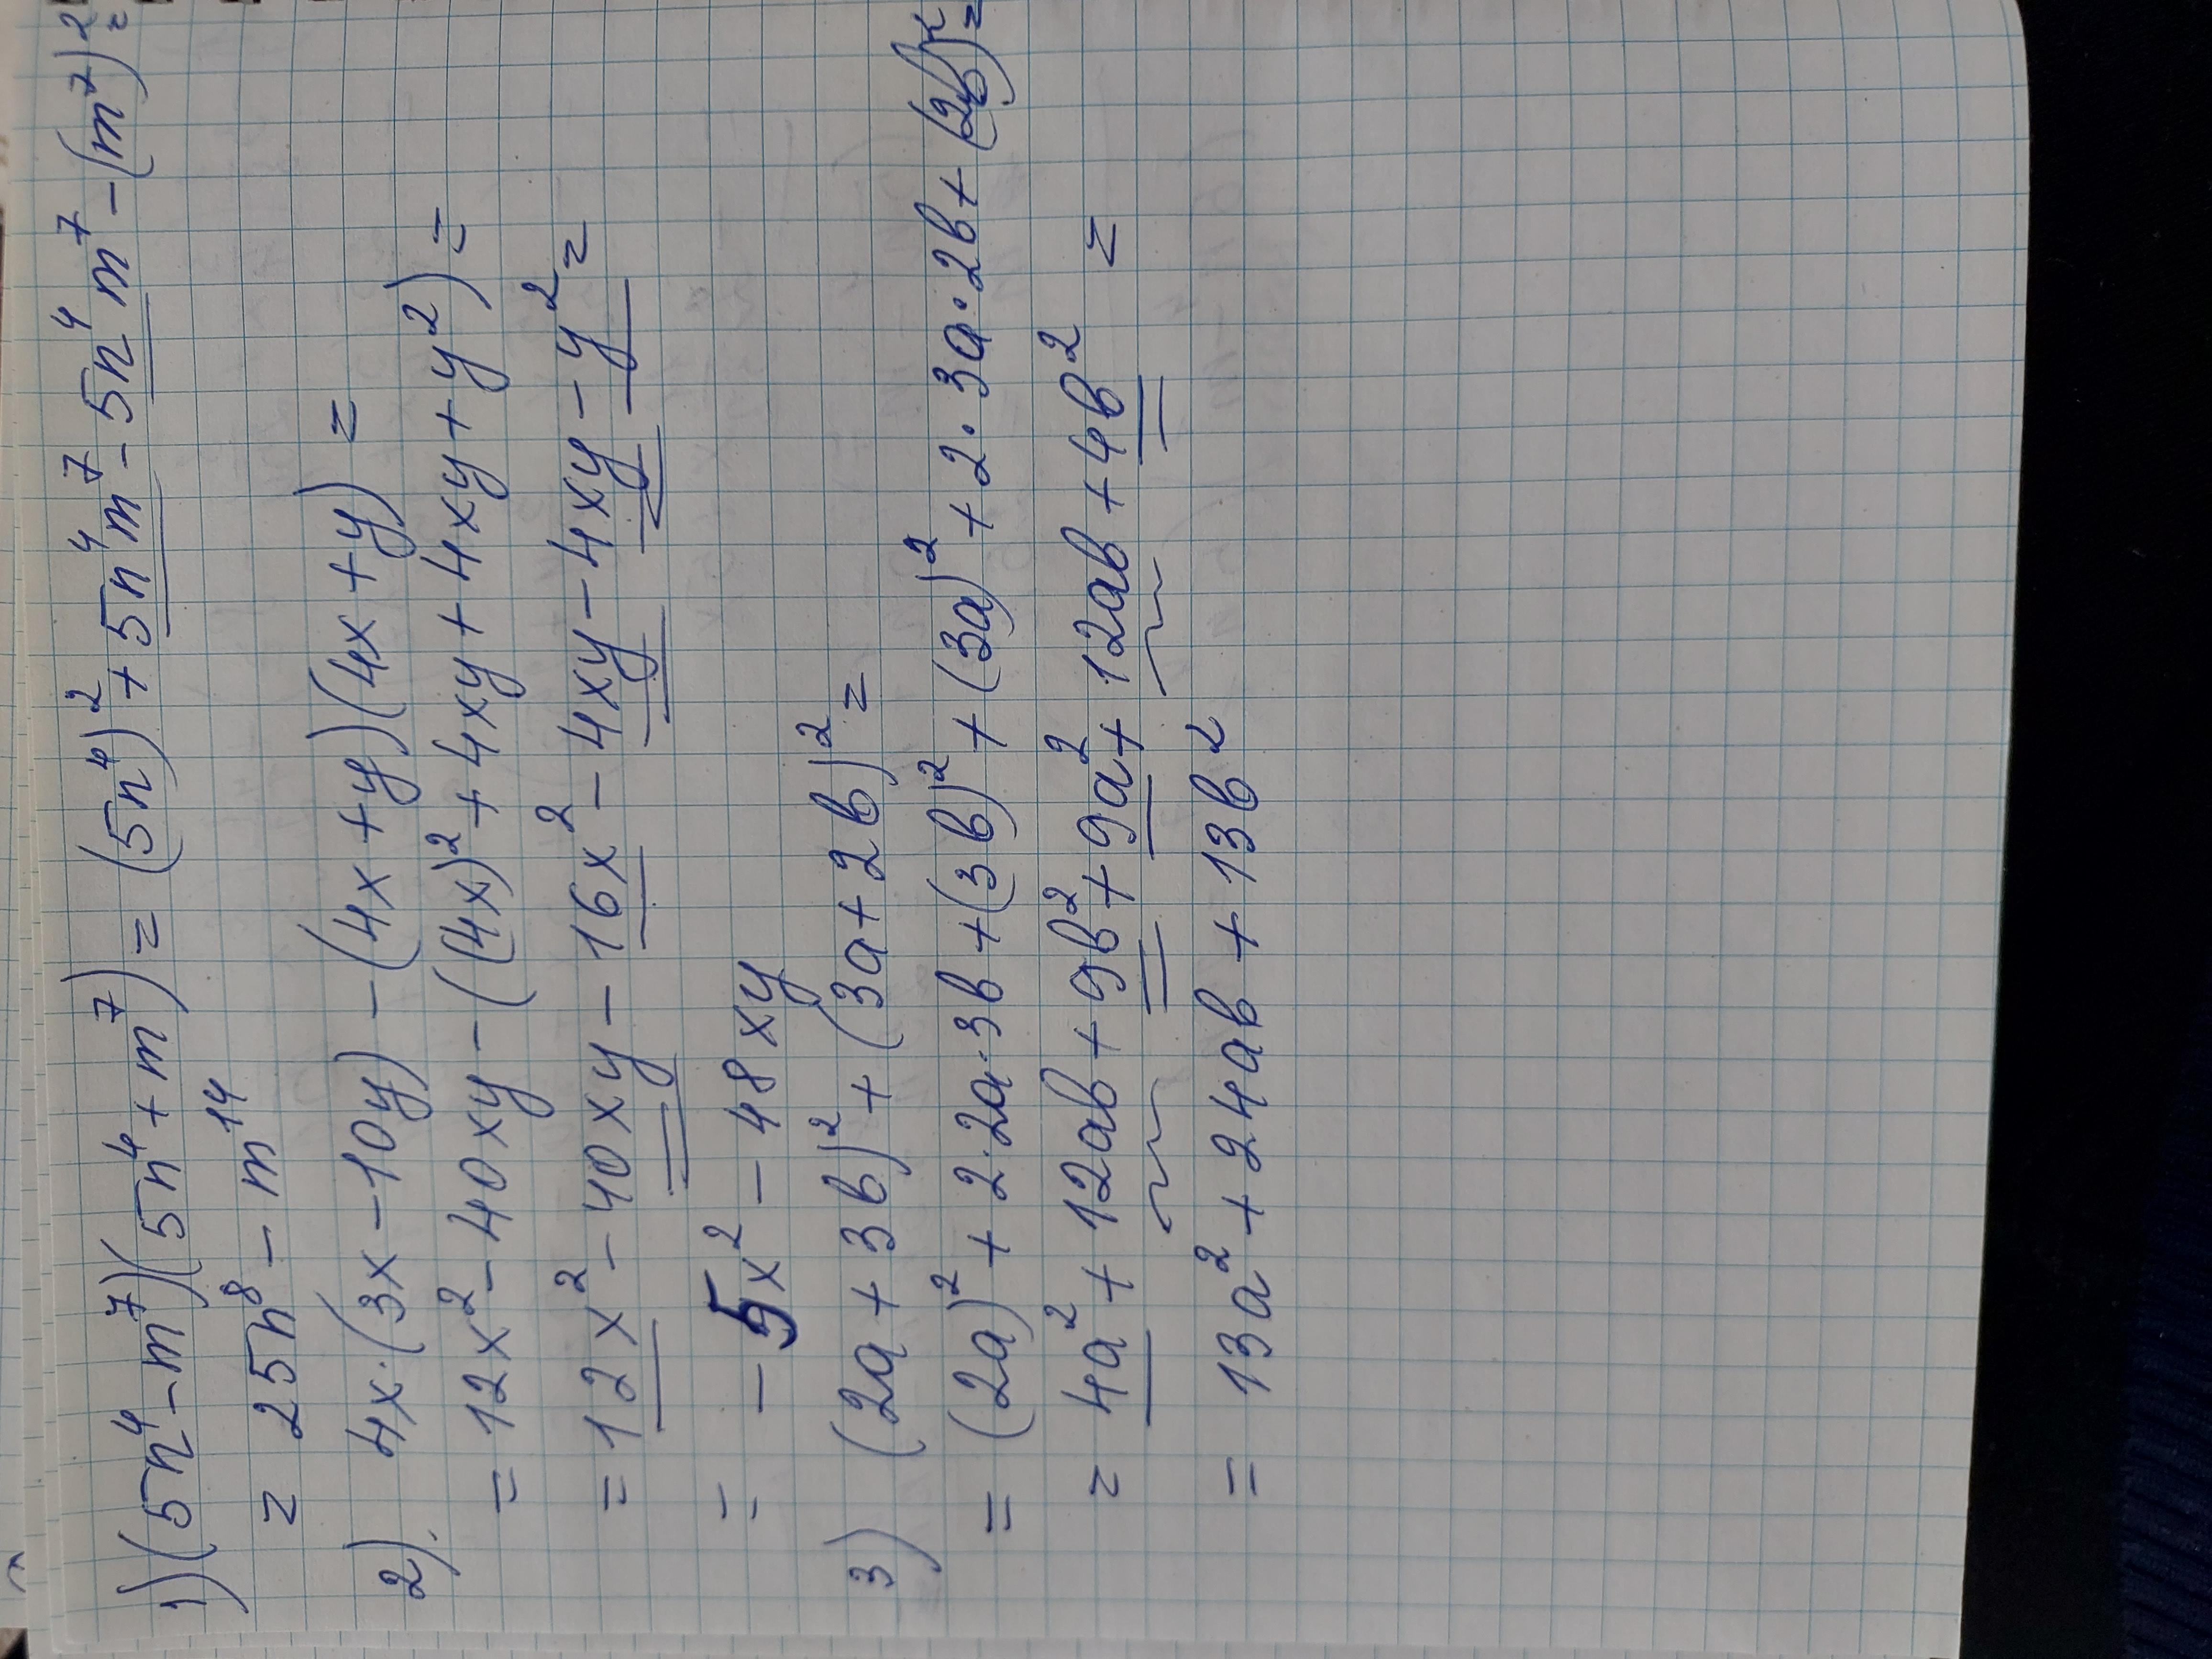 1) (5n⁴ - m⁷)(5n⁴ + m⁷) = (5n⁴)² + 5n⁴m⁷ - 5n⁴m⁷ - (m⁷)² =
= 25n⁸ - m¹⁴
2). 4x·(3x - 10y) - (4x + y)(4x + y) =
= 12x² - 40xy - ((4x)² + 4xy + 4xy + y²) =
= 12x² - 40xy - 16x² - 4xy - 4xy - y² =
= - 5x² - 48xy
3) (2a + 3b)² + (3a + 2b)² =
= (2a)² + 2·2a·3b + (3b)² + (3a)² + 2·3a·2b + (2b)² =
= 4a² + 12ab + 9b² + 9a² + 12ab + 4b² =
= 13a² + 24ab + 13b²